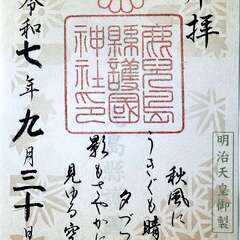 明治天皇御製
拝
秋風に
うきぐも晴
夕づ
影もさやかに
見ゆる空
鹿兒島
縣護國
神社印
令和七年九月三十日